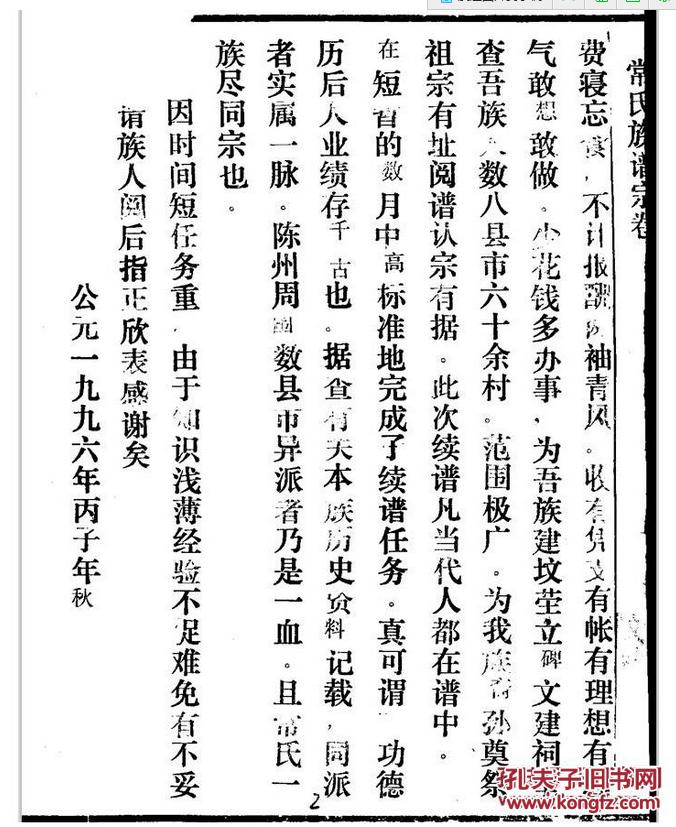 常氏族谱宗卷
费寝忘食，不计报酬两袖青风。收有凭支有帐有理想有
气敢想敢做。少花钱多办事，为吾族建坟茔立碑文建祠
查吾族人数八县市六十余村。范围极广。为我族裔孙奠祭
祖宗有址阅谱认宗有据。此次续谱凡当代人都在谱中。
在短暂的数月中高标准地完成了续谱任务。真可谓 功德
历后人业绩存千古也。据查有关本族历史资料记载，同派
者实属一脉。陈州周围数县市异派者乃是一血。且常氏一
族尽同宗也。
因时间短任务重，由于知识浅薄经验不足难免有不妥
请族人阅后指正欣表感谢矣
公元一九九六年丙子年秋
2
孔夫子旧书网
www.kongfz.com